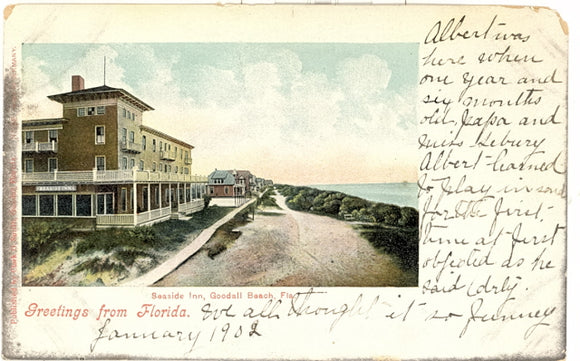 Albert was
here when
one year and
six months
old. Papa and
Miss
Albert learned
to play in sand
for the first
time at first
objected as he
said dirty.
SEASIDE INN
Seaside Inn, Goodall Beach, Fla.
Greetings from Florida.
We all thought it so funney
January 1902